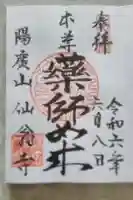 奉拝
令和六年
六月八日
本尊
藥師如来
陽廣山仙翁寺